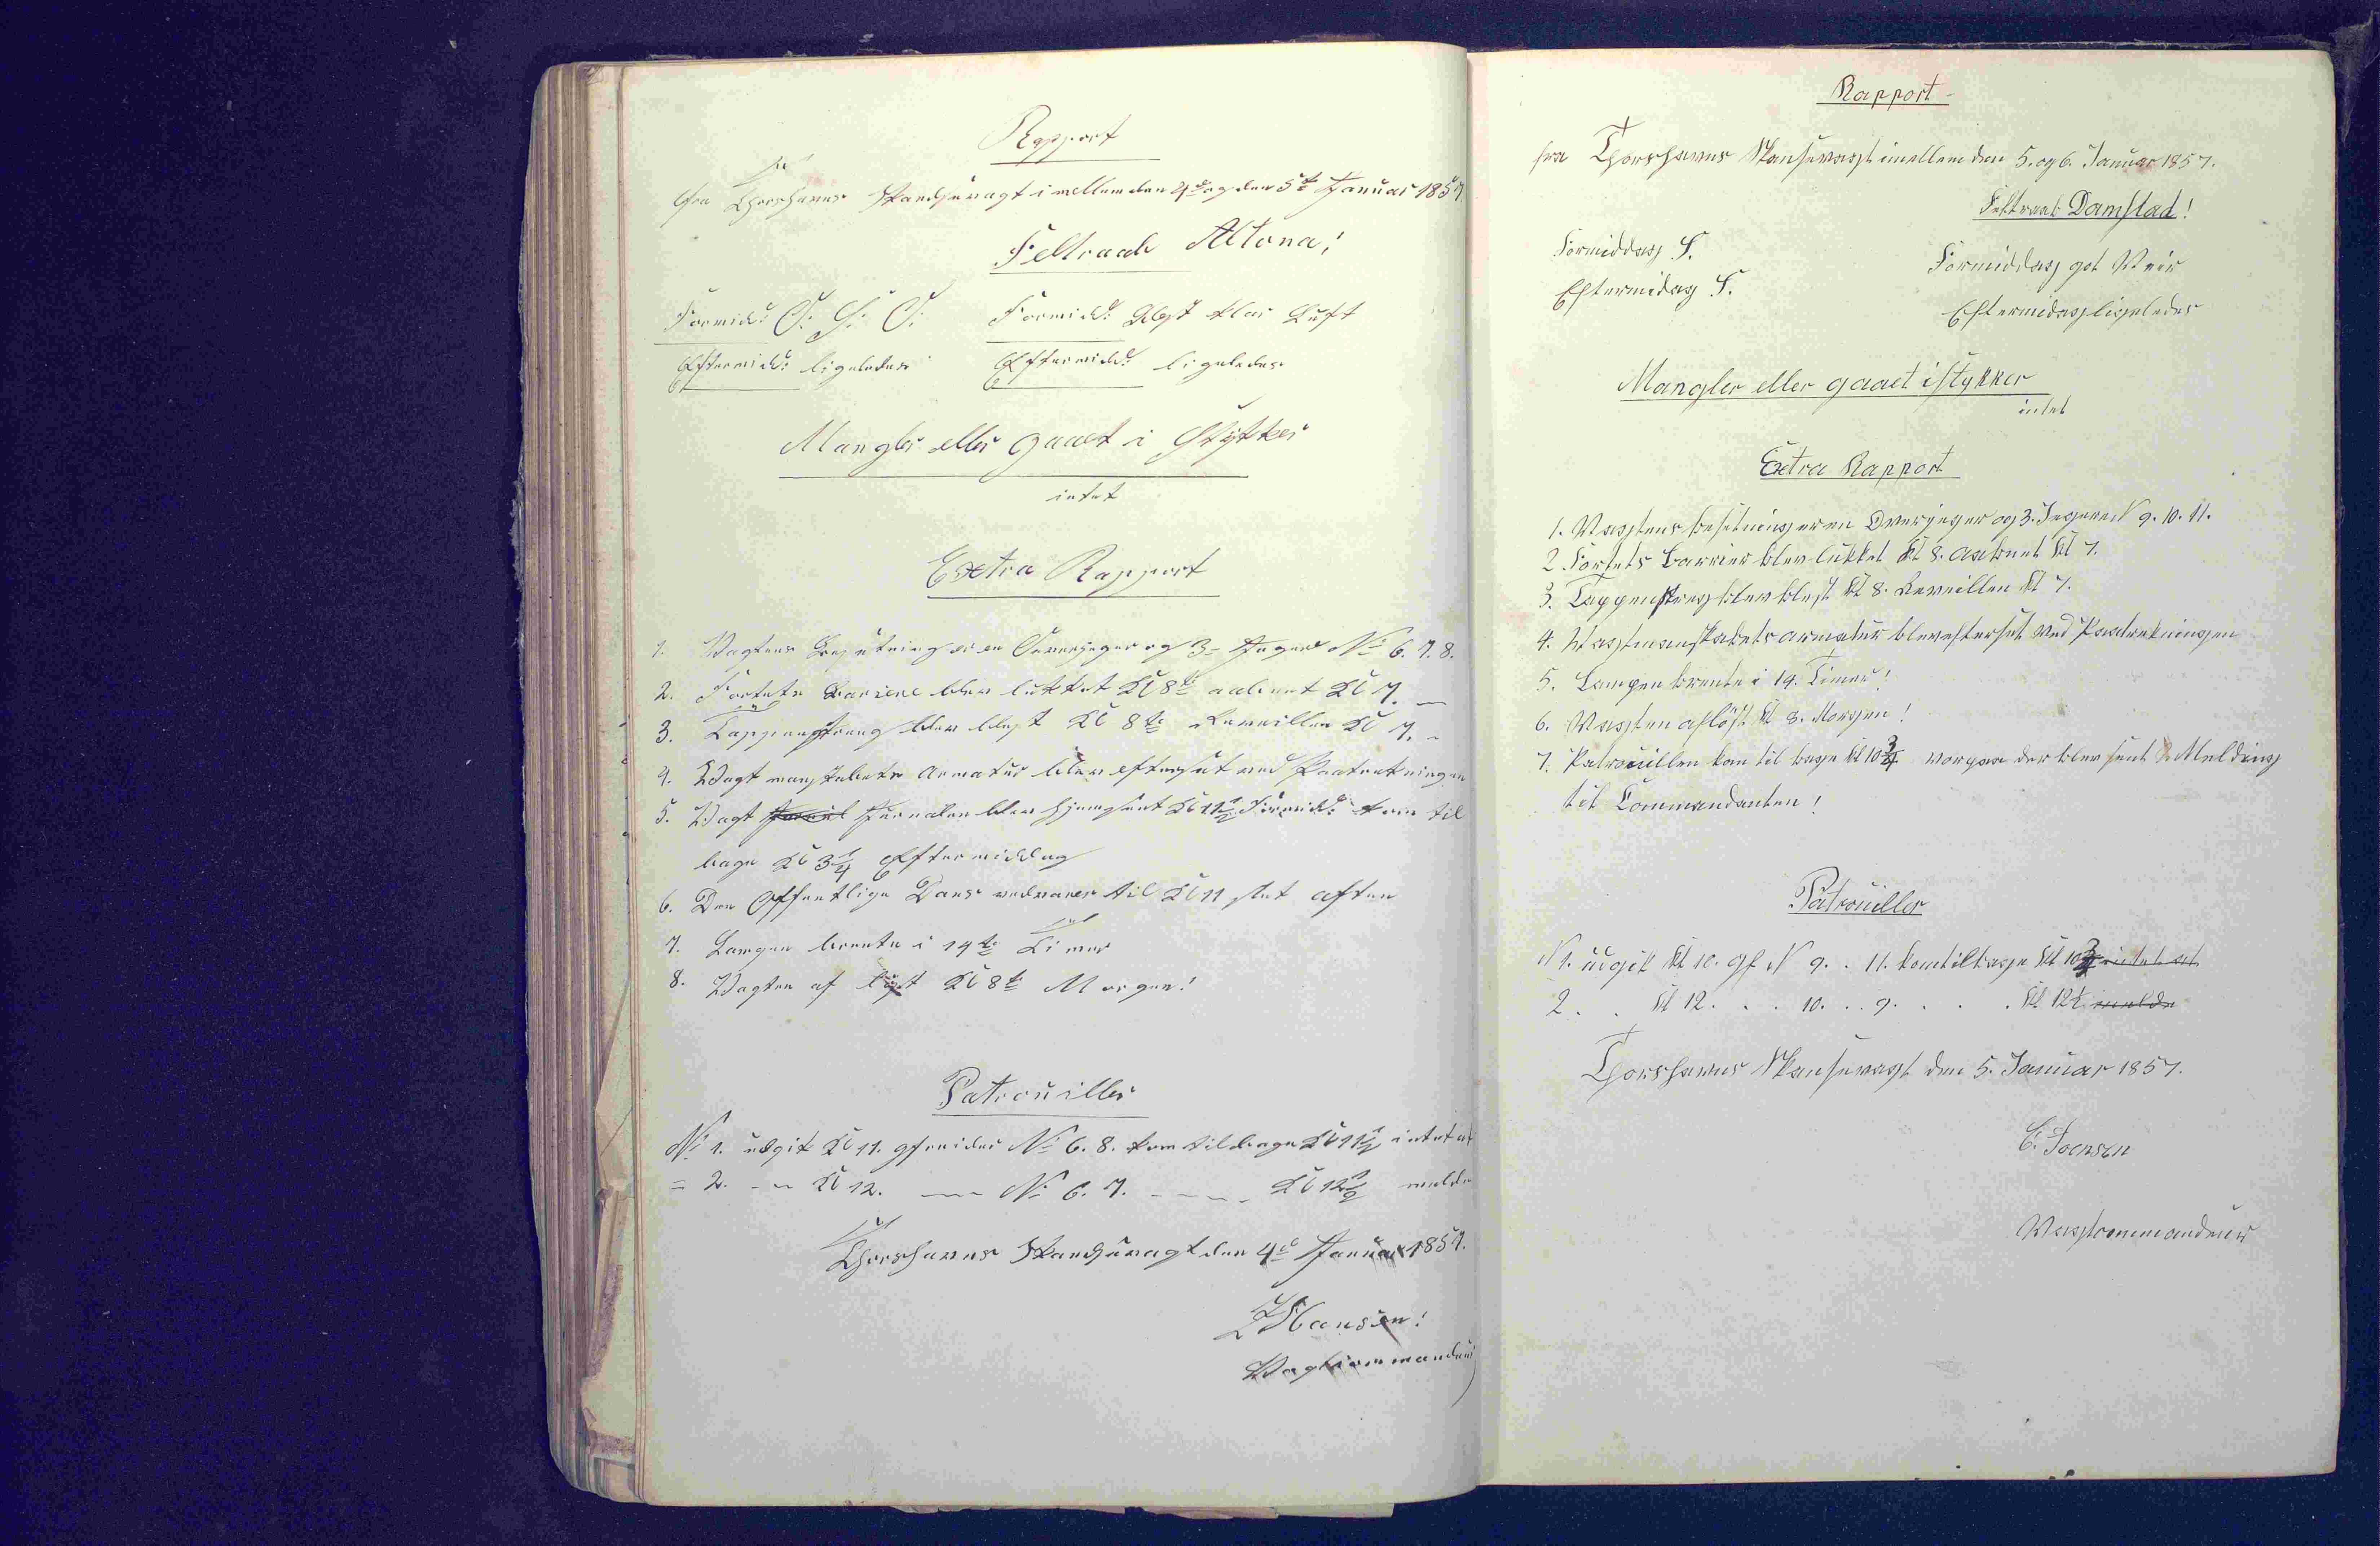 Rapport
fra Thorshavns Skandsevagt imellem den 4de og den 5te Januar 1857
Feltraab Altona!
Formidd: O. S. O. Formidd: Blæst klar Luft
Eftermidd: ligeledes Eftermidd: ligeledes
Mangler eller gaaet i Stykker
intet
Extra Rapport
1. Vagtens Besetning er en Overjeger og 3 Jegere No 6. 7. 8.
2. Fortets Bariere blev lukket Kl 8te aabnet Kl 7.
3. Tappenstreg blev blest Kl 8te Reveillen Kl 7.
4. Vagt manskabets Armatur blev efterset ved Paatrekningen
5. Vagt Jurnalen blev hjemsent Kl 11½ Formidd: kom til
bage Kl 3¼ Eftermiddag
6. Den Offentlige Dans vedvarer til Kl 11 slet aften
7. Lampen brente i 19te Timer
8. Vagten af løst Kl 8te Morgen!
Patrouiller
No 1. udgik Kl 11. gfreider No 6. 8. kom tilbage Kl 11½ intet at
= 2. — Kl 12. — No 6. 7. — Kl 12½ melde
Thorshavns Skandsevagt den 4de Januar 1857.
Hansen!
Vagtcommandeur
Rapport
fra Thorshavns Skansevagt imellem den 5. og 6. Januar 1857.
Feltraab Damstad!
Formiddag S. Formiddag got Veir
Eftermidag S. Eftermidag ligeledes
Mangler eller gaaet istykker
intet
Extra Rapport
1. Vagtens besetning er en Overjeger og 3. Jegere N 9. 10. 11.
2. Fortets Barrier blev lukket Kl 8. aabnet Kl 7.
3. Tappenstreg blev blest Kl 8. Reveillen Kl 7.
4. Vagtmanskabets armatur blev efterset ved Paatrekningen
5. Lampen brente i 19. Timer!
6. Vagten afløst Kl 8. Morgen!
7. Patrouillen kom til bage Kl 10¾ vorpaa der blev sent Melding
til Commandanten!
Patrouiller
N 1. udgik Kl 10. gf N 9. . 11. kom tilbage Kl 10¾ intet at
2. . Kl 12. . . 10. . . 9. . . . Kl 12½ melde
Thorshavns Skansevagt den 5. Januar 1857.
C. Joensen
Vagtcommandeur